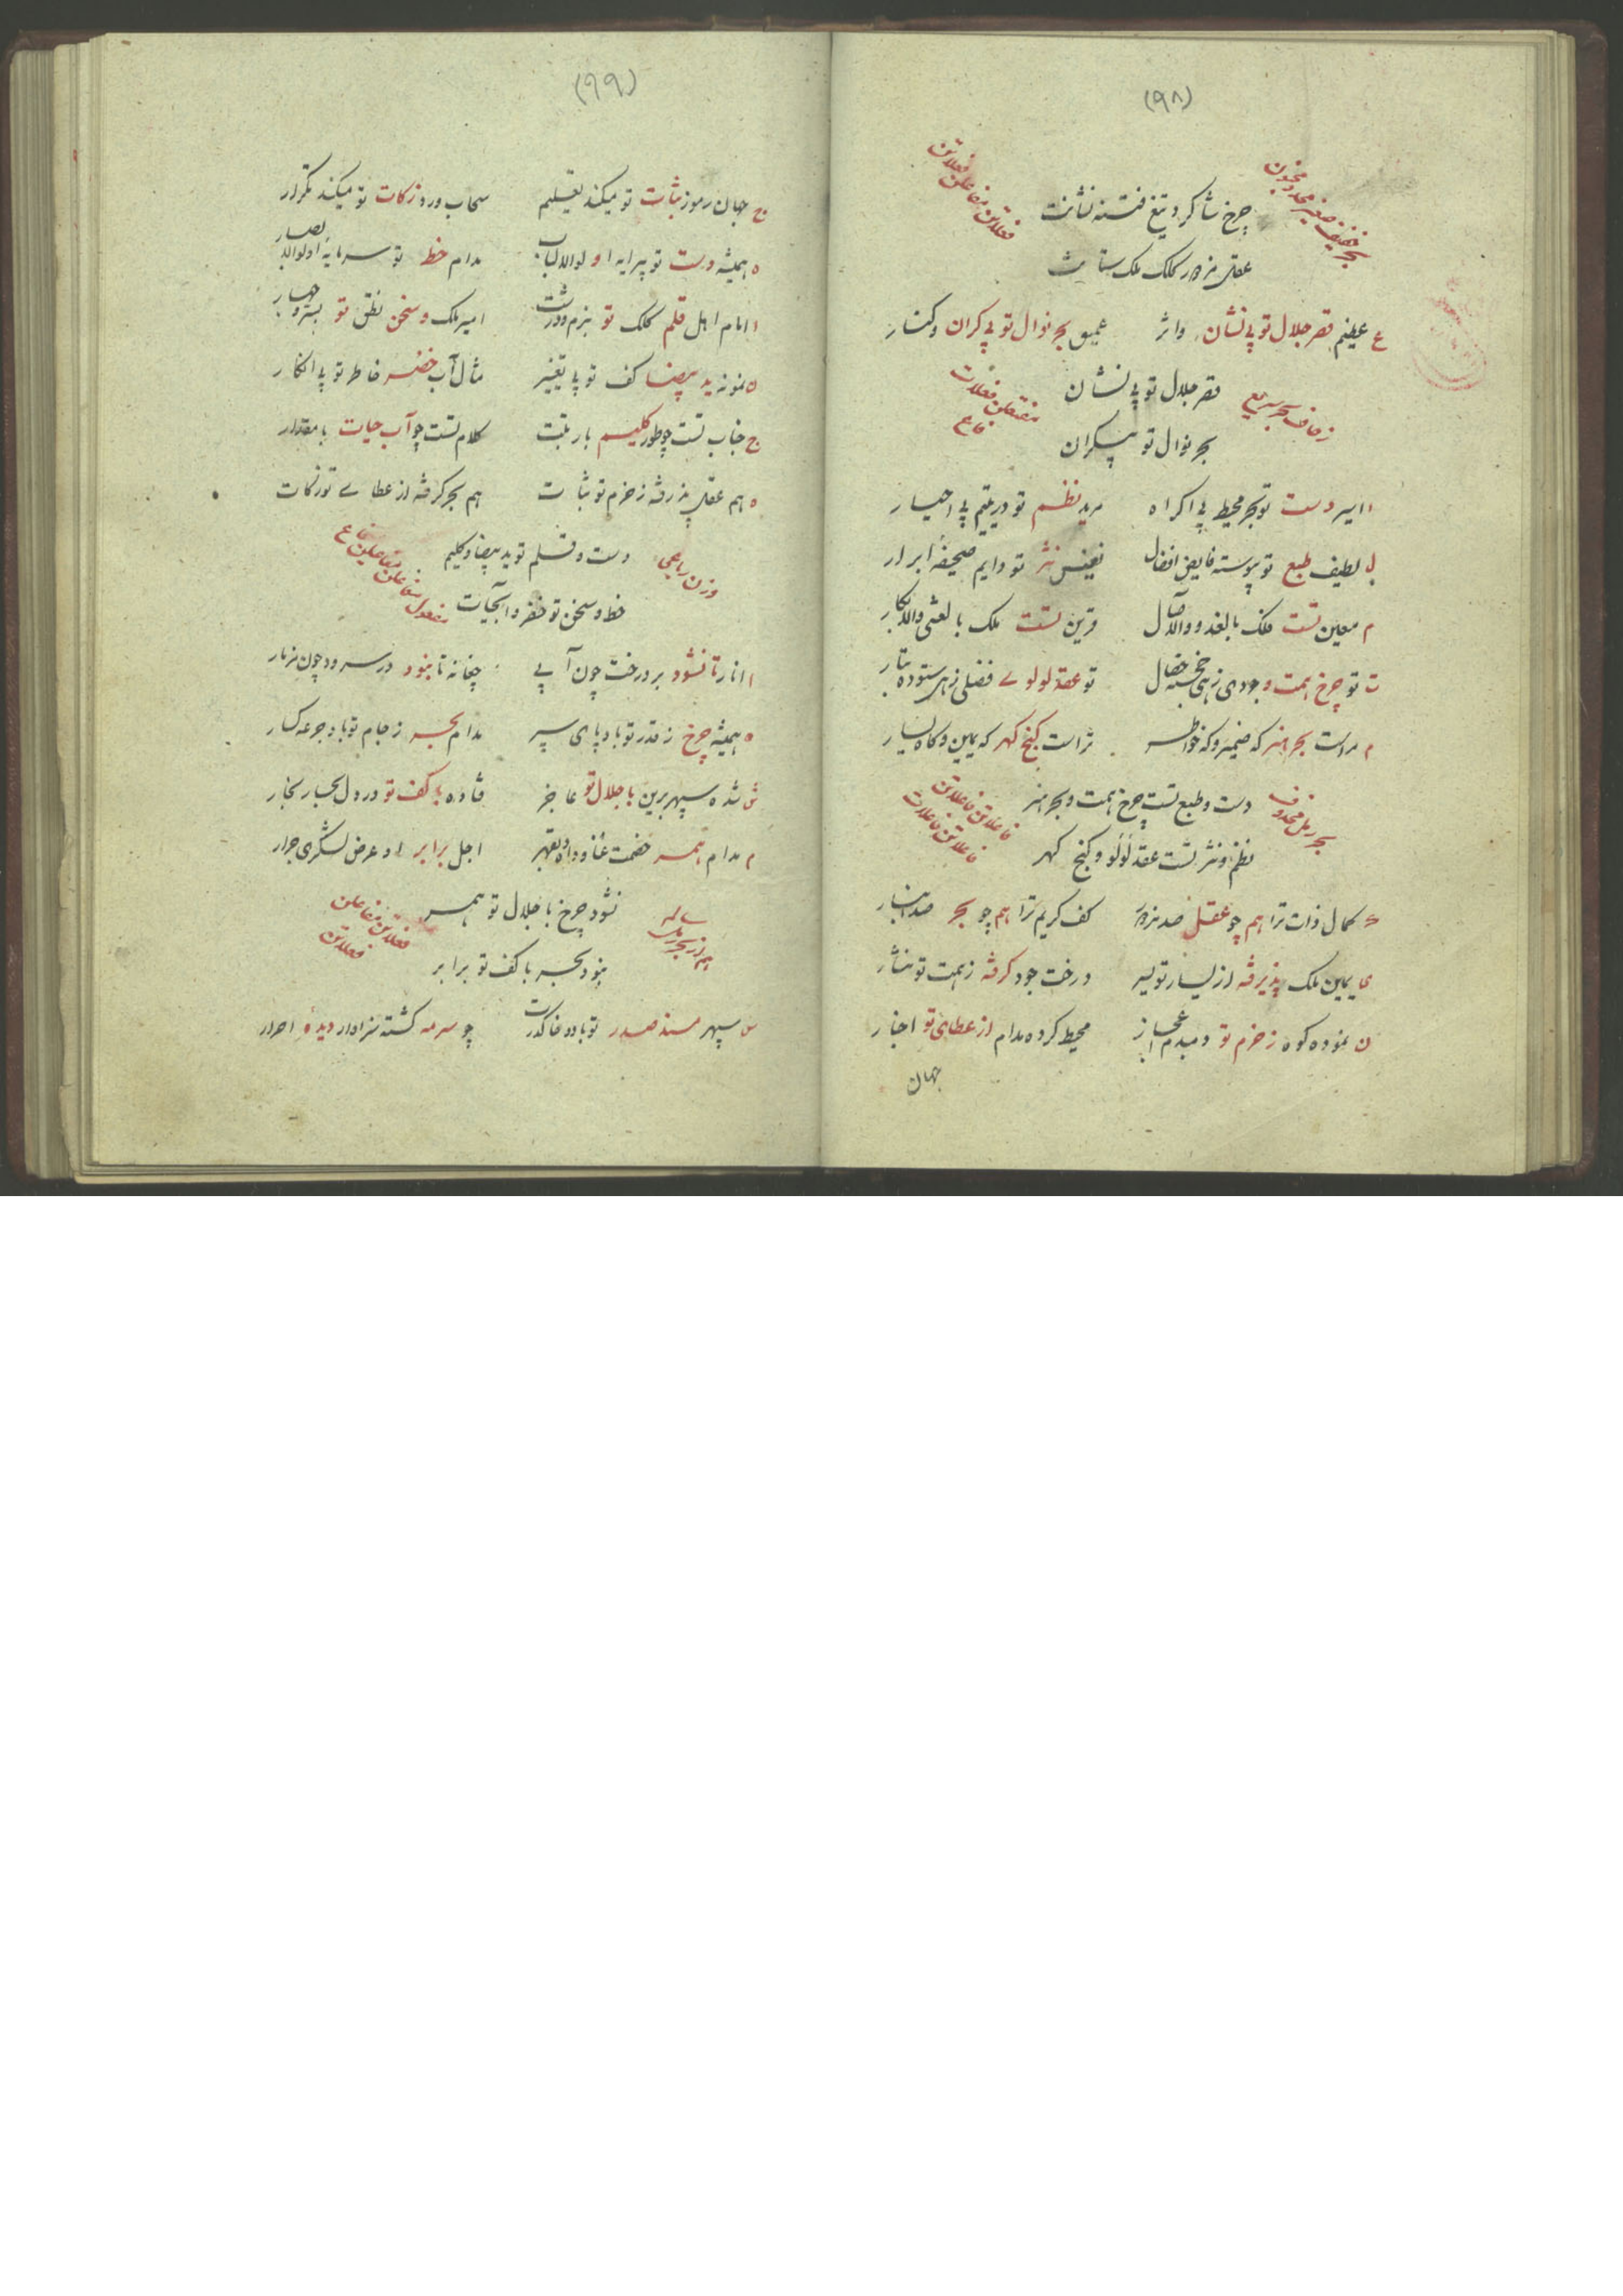 (۹۸)
بحر خفیف صغیر مخبون
فعلاتن مفاعلن فعلاتن
چرخ شاکرد تیغ فتنه نشانت
عقل مزدور کلک ملک ستانت
ع عظیم قصر جلال تو بی نشان واثر عمیق بحر نوال تو بی کران وکنار
زحاف بحر سریع
قصر جلال تو بی نشان
مفتعلن فعلات فاع
بحر نوال تو بیکران
ا اسیر دست تو بحر محیط بی اکراه مرید نظم تو در یتیم بی اجبار
ل لطیف طبع تو پیوسته فایض افضال نفیس نثر تو دایم صحیفهٔ ابرار
م معین تست فلک بالغدو والاصال قرین تست ملک بالعشی والابکار
ت تو چرخ همت وجودی زهی خجسته خصال تو عقد لولوے فضلی زهی ستوده تبار
م مراست بحر هنر که ضمیر وکه خاطر تراست کنج کهر که یمین وکاه یسار
بحر رمل محذوف
دست وطبع تست چرخ همت وبحر هنر
فاعلاتن فاعلاتن فاعلاتن فاعلات
نظم ونثر تست عقد لؤلؤ وکنج کهر
ک کمال ذات ترا هم چو عقل صد مزدور کف کریم ترا هم چو بحر صد انبار
ی یمین ملک پذیرفته از یسار تو یسر درخت جود کرفته زهمت تو نثار
ن نموده کوه زحزم تو دمبدم اعجاز محیط کرده مدام از عطای تو اخبار
جهان
(۹۹)
ج جهان رموز ثبات تو میکند تعلیم سحاب ورد زکات تو میکند تکرار
ه همیشه دست تو پیرایه اولوالالباب مدام خط تو سرمایه اولوالابصار
ا امام اهل قلم کلک تو بنرم ودرشت امیر ملک وسخن نطق تو بستر وجهار
ن نمونه ید بیضا کف تو بی تغییر مثال آب خضر خاطر تو بی انکار
ج جناب تست چو طور کلیم بارتبت کلام تست چو آب حیات بامقدار
ه هم عقل پذیرفته زحزم تو ثبات هم بحر کرفته از عطاے تو زکات
وزن رباعی
دست وقلم تو ید بیضا وکلیم
مفعول مفاعلن مفاعیلن فاع
خط وسخن تو خضر وآبحیات
ا انار تا نشود بر درخت چون آبی چغانه تا نبود در سرود چون مزمار
ه همیشه چرخ زقدر تو باد پای سپر مدام بحر زجام تو باد جرعه کسار
ش شده سپهر برین با جلال تو عاجز فتاده با کف تو در دل بحار بخار
م مدام همسر خصمت عنا وداده بقهر اجل برابر او عرض لشکری جرار
نشود چرخ با جلال تو همسر
فعلاتن مفاعلن فعلاتن
نبود بحر با کف تو برابر
س سپهر مسند صدر تو باد وخاک درت چو سرمه کشته سزاوار دیدهٔ احرار